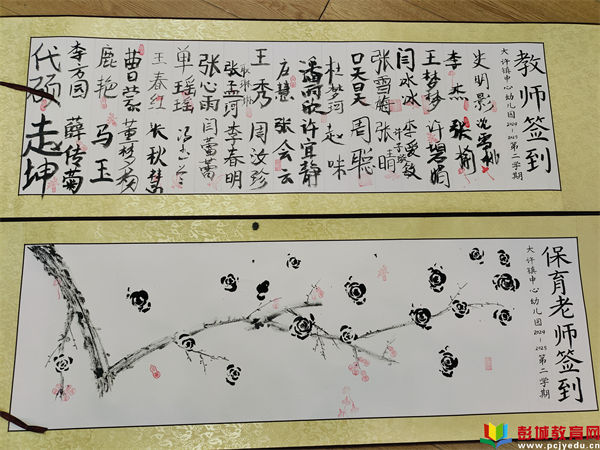 教师签到
大许镇中心幼儿园2024-2025第二学期
史明影
李杰 张榆
王梦梦 许碧娟
闫冰冰 李爱敏
张雪梅 张晴
吴昊 周聪
杜梦珂 赵咪
潘雨欣 许宜静
左慧 张会云
王秀 周汝珍
张孟珂 李春明
张心雨 闫蕾蕾
单瑶瑶
王春红 张秋慧
曹日蒙 董梦彤
鹿艳 马玉
李方园 薛传菊
代硕 赵坤
保育老师签到
大许镇中心幼儿园2024-2025第二学期
彭城教育网
www.pcjyedu.cn